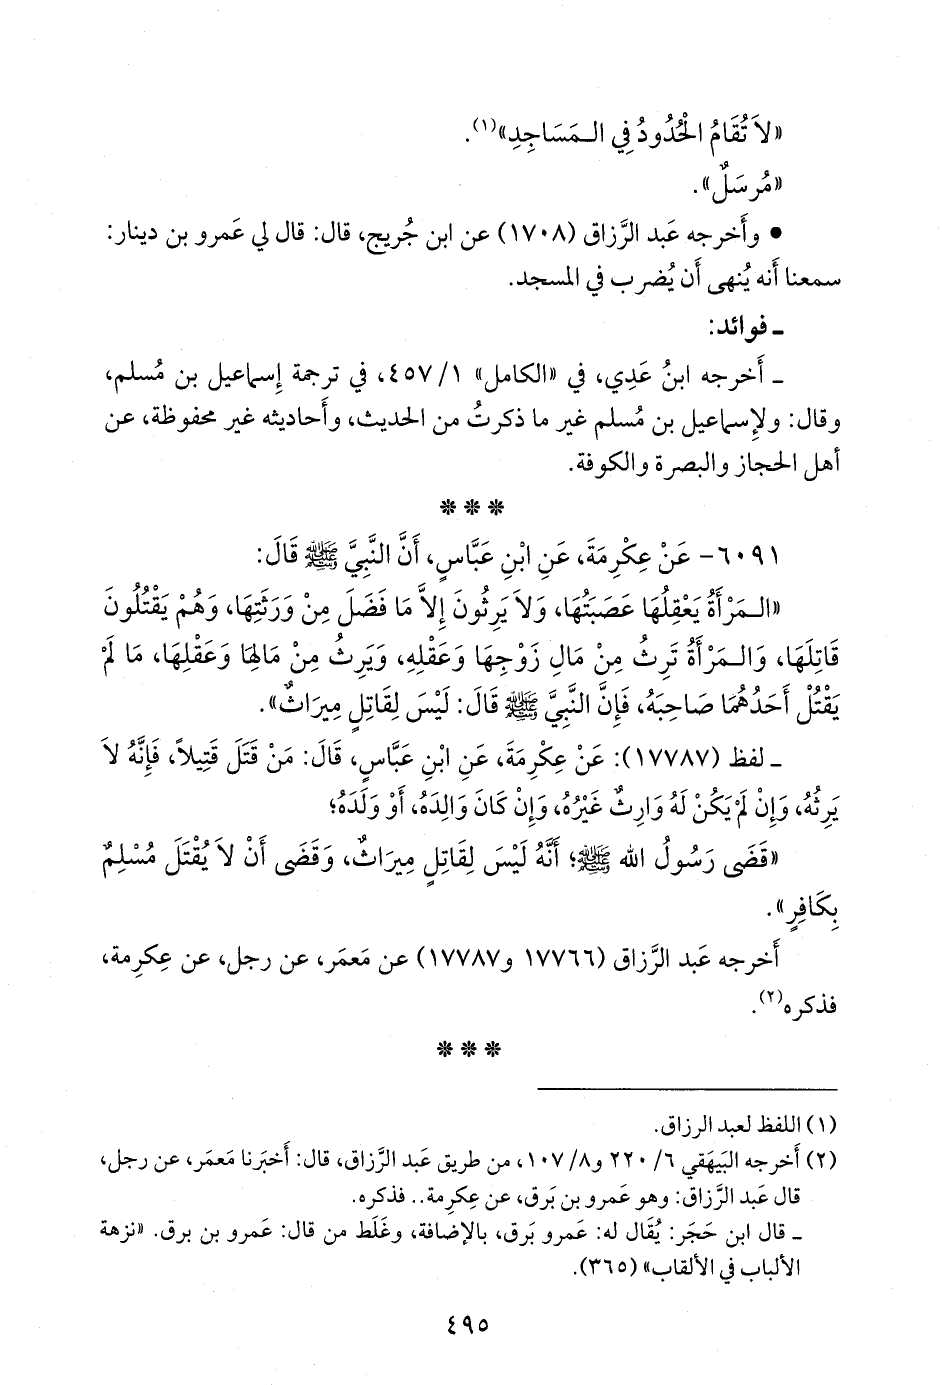 «لاَ تُقَامُ الْحُدُودُ فِي الـمَسَاجِدِ»(١).
«مُرسَلٌ».
• وأَخرجه عَبد الرَّزاق (١٧٠٨) عن ابن جُريج، قال: قال لي عَمرو بن دينار:
سمعنا أَنه يُنهى أَن يُضرب في المسجد.
ـ فوائد:
ـ أَخرجه ابنُ عَدِي، في «الكامل» ١/ ٤٥٧، في ترجمة إِسماعيل بن مُسلم،
وقال: ولإِسماعيل بن مُسلم غير ما ذكرتُ من الحديث، وأَحاديثه غير محفوظة، عن
أهل الحجاز والبصرة والكوفة.
* * *
٦٠٩١- عَنْ عِكْرِمَةَ، عَنِ ابْنِ عَبَّاسٍ، أَنَّ النَّبِيَّ ﷺ قَالَ:
«الـمَرْأَةُ يَعْقِلُهَا عَصَبَتُهَا، وَلاَ يَرِثُونَ إِلاَّ مَا فَضَلَ مِنْ وَرَثَتِهَا، وَهُمْ يَقْتُلُونَ
قَاتِلَهَا، وَالـمَرْأَةُ تَرِثُ مِنْ مَالِ زَوْجِهَا وَعَقْلِهِ، وَيَرِثُ مِنْ مَالِهَا وَعَقْلِهَا، مَا لَمْ
يَقْتُلْ أَحَدُهُمَا صَاحِبَهُ، فَإِنَّ النَّبِيَّ ﷺ قَالَ: لَيْسَ لِقَاتِلٍ مِيرَاثٌ».
ـ لفظ (١٧٧٨٧): عَنْ عِكْرِمَةَ، عَنِ ابْنِ عَبَّاسٍ، قَالَ: مَنْ قَتَلَ قَتِيلاً، فَإِنَّهُ لاَ
يَرِثُهُ، وَإِنْ لَمْ يَكُنْ لَهُ وَارِثٌ غَيْرُهُ، وَإِنْ كَانَ وَالِدَهُ، أَوْ وَلَدَهُ؛
«قَضَى رَسُولُ الله ﷺ؛ أَنَّهُ لَيْسَ لِقَاتِلٍ مِيرَاثٌ، وَقَضَى أَنْ لاَ يُقْتَلَ مُسْلِمٌ
بِكَافِرٍ».
أَخرجه عَبد الرَّزاق (١٧٧٦٦ و١٧٧٨٧) عن مَعمَر، عن رجل، عن عِكرِمة،
فذكره(٢).
* * *
(١) اللفظ لعبد الرزاق.
(٢) أَخرجه البَيهَقي ٦/ ٢٢٠ و٨/ ١٠٧، من طريق عَبد الرَّزاق، قال: أَخبَرنا مَعمَر، عن رجل،
قال عَبد الرَّزاق: وهو عَمرو بن بَرق، عن عِكرِمة.. فذكره.
ـ قال ابن حَجَر: يُقَال له: عَمرو بَرق، بالإضافة، وغَلَط من قال: عَمرو بن برق. «نزهة
الألباب في الألقاب» (٣٦٥).
٤٩٥